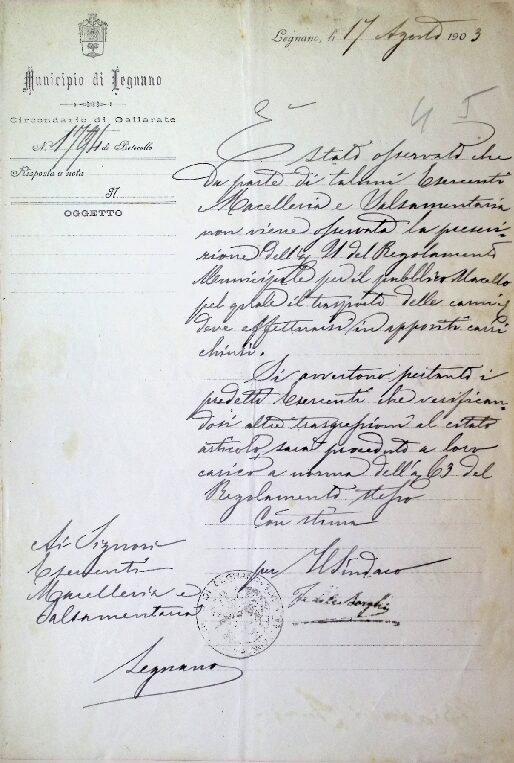 Legnano, li 17 Agosto 1903
Municipio di Legnano
Circondario di Gallarate
N. 1794 di Protocollo
Risposta a nota
N.
OGGETTO
4 5
È stato osservato che
da parte di taluni Esercenti
Macelleria e Salsamentaria
non viene osservata la prescri-
zione dell'art. 91 del Regolamento
Municipale per il pubblico Macello
pel quale il trasporto delle carni
deve effettuarsi in appositi carri
chiusi.
Si avvertono pertanto i
predetti Esercenti che verifican-
dosi altre trasgressioni al citato
articolo, sarà proceduto a loro
carico a norma dell'art. 63 del
Regolamento stesso
Con stima
per Il Sindaco
Ai Signori
Esercenti
Macelleria e
Salsamentaria
Legnano